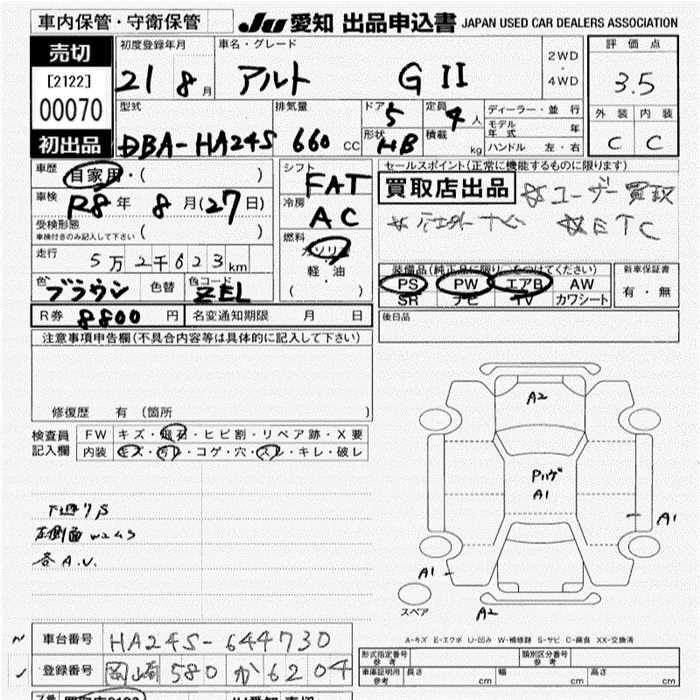 車内保管・守衛保管
JU 愛知 出品申込書 JAPAN USED CAR DEALERS ASSOCIATION
売切
[2122]
00070
初出品
初度登録年月
21 8 月
車名・グレード
アルト G II
2WD
・
4WD
評価点
3.5
外装 内装
C C
型式
DBA-HA24S
排気量
660 CC
ドア
5
形状
HB
定員
4 人
積載
kg
ディーラー・並行
モデル年式 年
ハンドル 左・右
車歴
自家用・( )
車検
R8 年 8 月(27日)
受検形態
車検付きのみ記入して下さい ( )
走行
5万2千623km
色
ブラウン
色替
色コード
ZEL
シフト
FAT
冷房
AC
燃料
ガソリン
・
軽・油
( )
セールスポイント(正常に機能するものに限ります)
買取店出品 ☆ユーザー買取
ナビ ☆ETC
装備品(純正品に限り○をつけてください)
PS PW エアB AW
SR ナビ TV カワシート
新車保証書
有・無
R券 8800 円 名変通知期限 月 日
後日品
注意事項申告欄(不具合内容等は具体的に記入して下さい)
修復歴 有 (箇所 )
検査員記入欄
FW キズ・飛石・ヒビ割・リペア跡・X要
内装 キズ・汚レ・コゲ・穴・スレ・キレ・破レ
下廻りS
左側面
各A.U.
A2
Pハゲ
A1
A1
A1
A2
スペア
A-キズ E-エクボ U-凹み W-補修跡 S-サビ C-腐食 XX-交換済
車台番号 HA24S-644730
登録番号 岡崎 580 か 6204
形式指定番号 参考
類別区分番号 参考
車庫証明用 参考 長さ cm 幅 cm 高さ cm